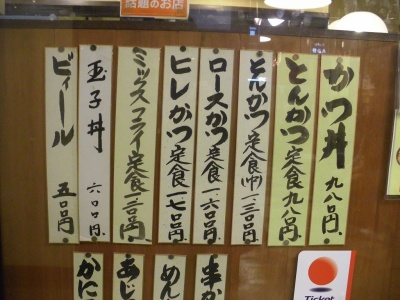 話題のお店
かつ丼 九八〇円
とんかつ定食 九八〇円
とんかつ定食(中) 一、三〇〇円
ロースかつ定食 一、六〇〇円
ヒレかつ定食 一、七〇〇円
ミックスフライ定食 一、三〇〇円
玉子丼 六〇〇円
ビィール 五〇〇円
串か
めん
あじ
かに
Ticket